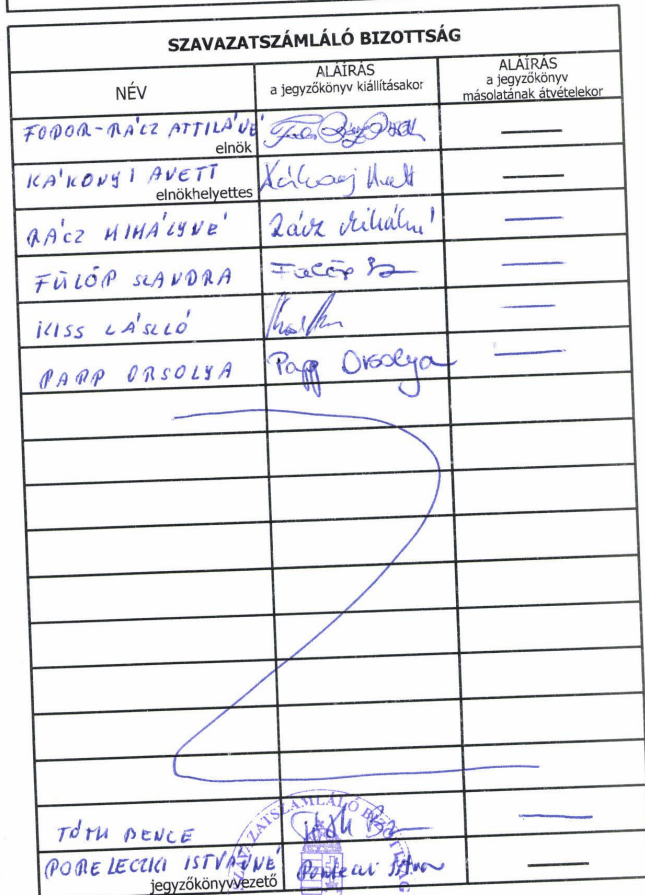 SZAVAZATSZÁMLÁLÓ BIZOTTSÁG
NÉV
ALÁÍRÁS
a jegyzőkönyv kiállításakor
ALÁÍRÁS
a jegyzőkönyv
másolatának átvételekor
FODOR-RÁCZ ATTILÁNÉ
elnök
KÁKONYI ANETT
elnökhelyettes
RÁCZ MIHÁLYNÉ Rácz Mihályné
FÜLÖP SZANDRA Fülöp Sz
KISS LÁSZLÓ
PAPP ORSOLYA Papp Orsolya
TÓTH BENCE Tóth
ISTVÁNNÉ
jegyzőkönyvvezető
SZAVAZATSZÁMLÁLÓ BIZOTTSÁG